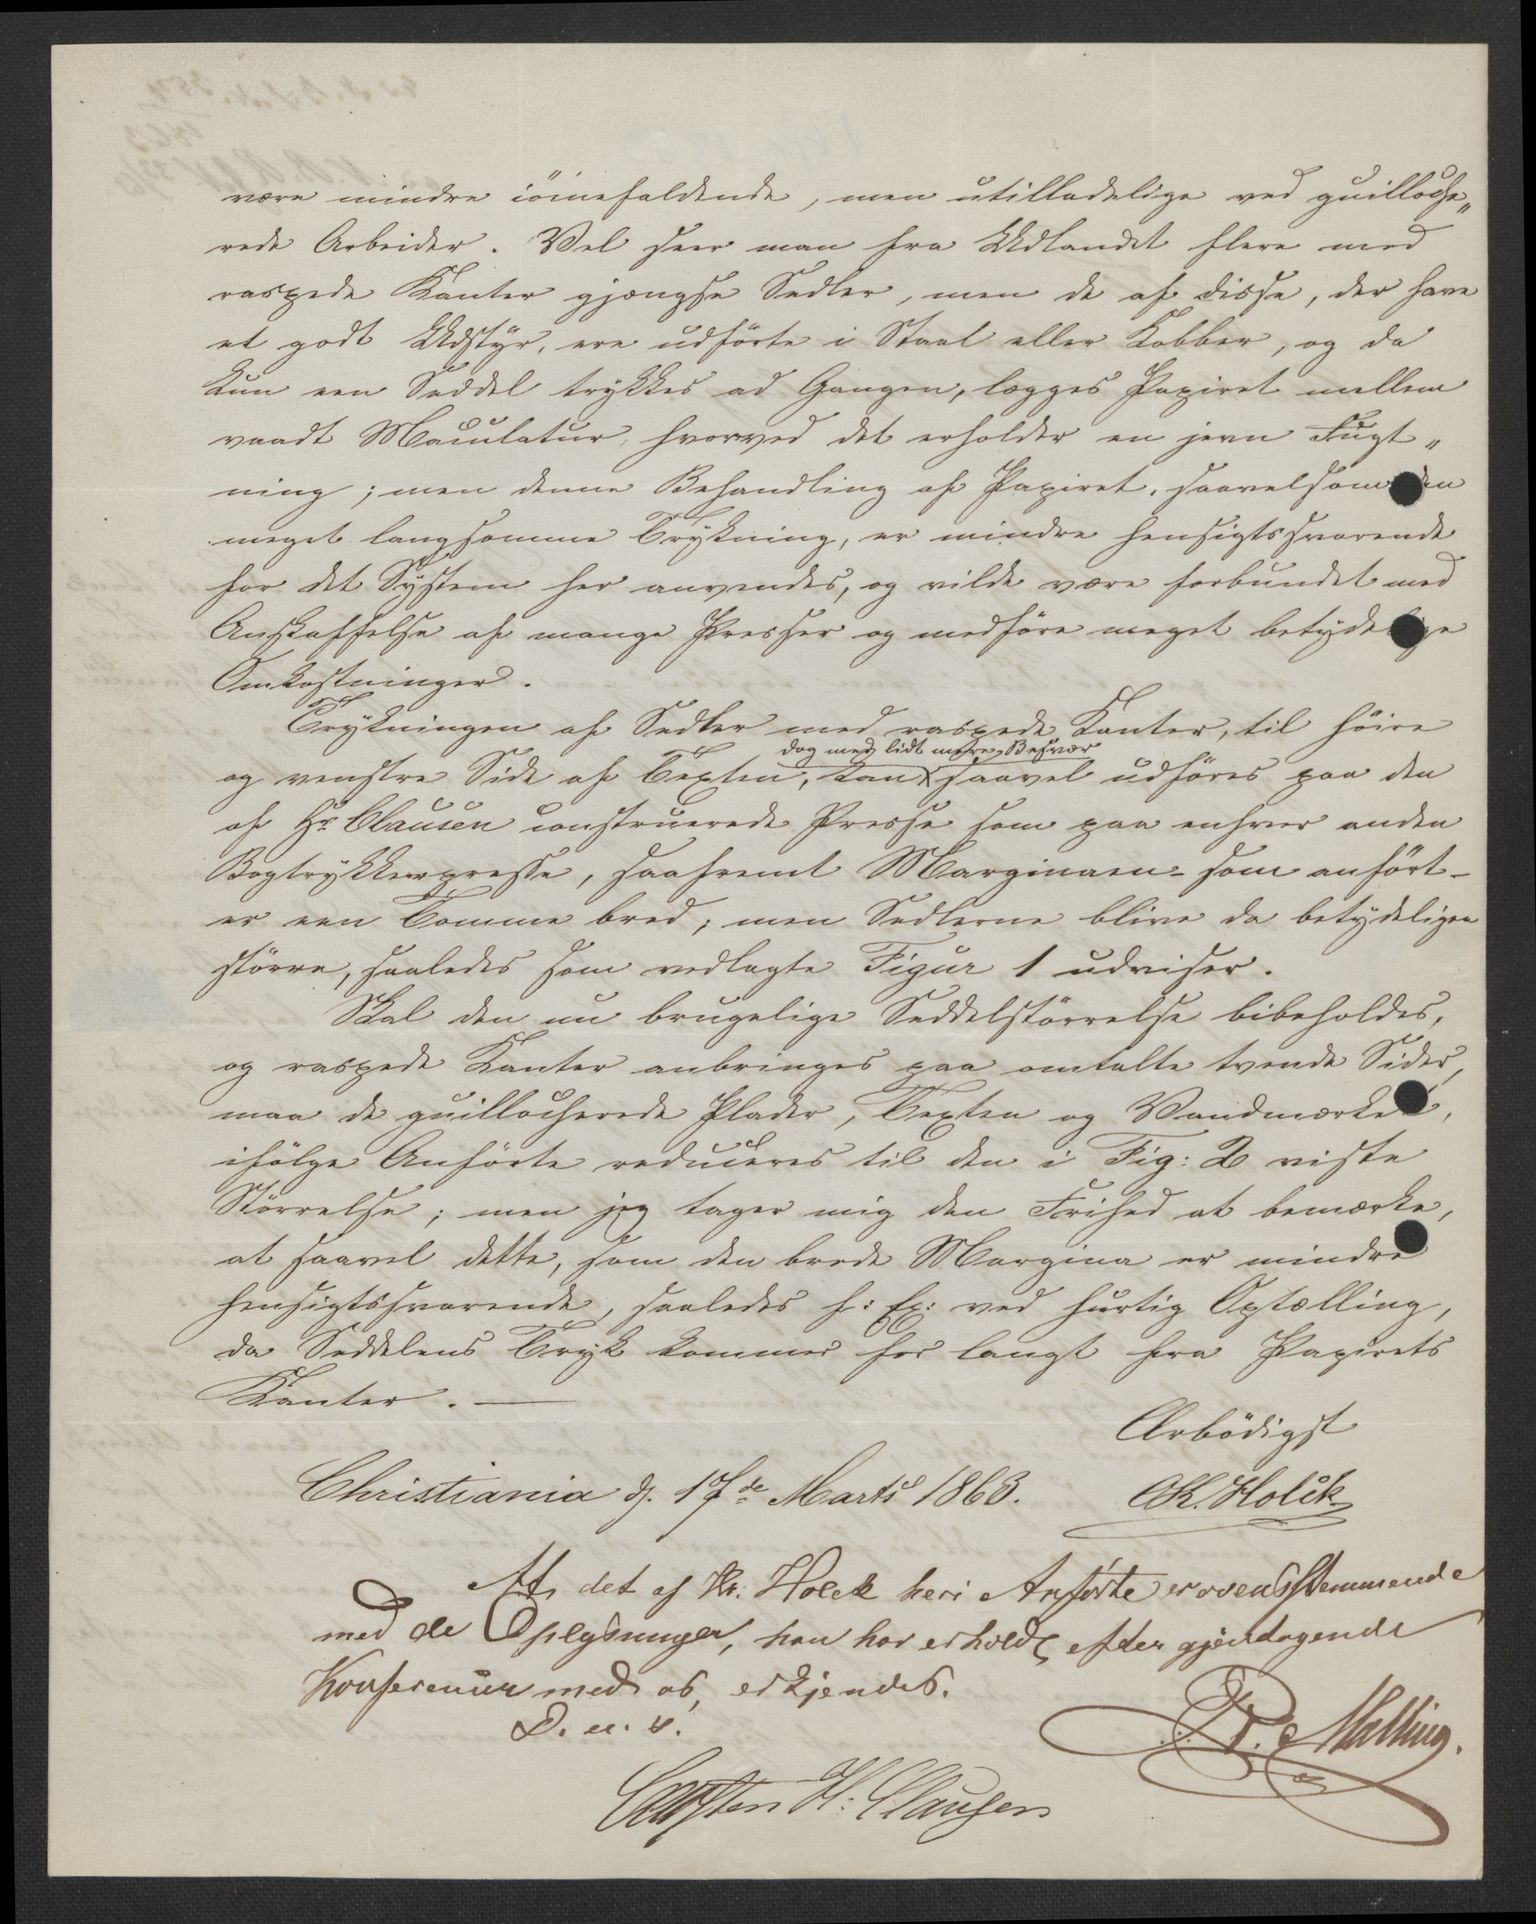 være mindre iöinefaldende, men utilladelige ved guilloche„
rede Arbeider. Vel seer man fra Udlandet flere med
raspede Kanter gjængse Sedler, men de af disse, der have
et godt Udstyr, ere udförte i Staal eller Kobber, og da
kun een Seddel trykkes ad Gangen, lægges Papiret mellem
vaadt Maculatur, hvorved det erholder en jevn Fugt„
ning; men denne Behandling af Papiret, saavelsom den
meget langsomme Trykning, er mindre hensigtssvarende
for det System her anvendes, og vilde være forbundet med
Anskaffelse af mange Presser og medföre meget betydelige
Omkostninger.
Trykningen af Sedler med raspede Kanter, til höire
dog med lidt mere Besvær
og venstre Side af Texten, kan saavel udföres paa den
af Hr Clausen construerede Presse som paa enhver anden
Bogtrykkerpresse, saafremt Marginaen - som anfört -
er een Tomme bred; men Sedlerne blive da betydeligen
större, saaledes som vedlagte Figur 1 udviser.
Skal den nu brugelige Seddelstörrelse bibeholdes,
og raspede Kanter anbringes paa omtalte tvende Sider,
maa de guillocherede Plader, Texten og Vandmærket,
ifölge Anförte reduceres til den i Fig: 2 viste
Störrelse; men jeg tager mig den Frihed at bemærke,
at saavel dette, som den brede Margina er mindre
hensigtssvarende, saaledes f: Ex: ved hurtig Optælling,
da Seddelens Tryk kommer for langt fra Papirets
Kanter. —
Ærbödigst
Christiania d. 17de Marts 1863. Chr. Holck
At det af Hr. Holck heri Anførte er overensstemmende
med de Oplysninger, han har erholdt efter gjentagende
Konferencer med os, erkjendes.
D. u. s.
Malling.
Carsten H: Clausen